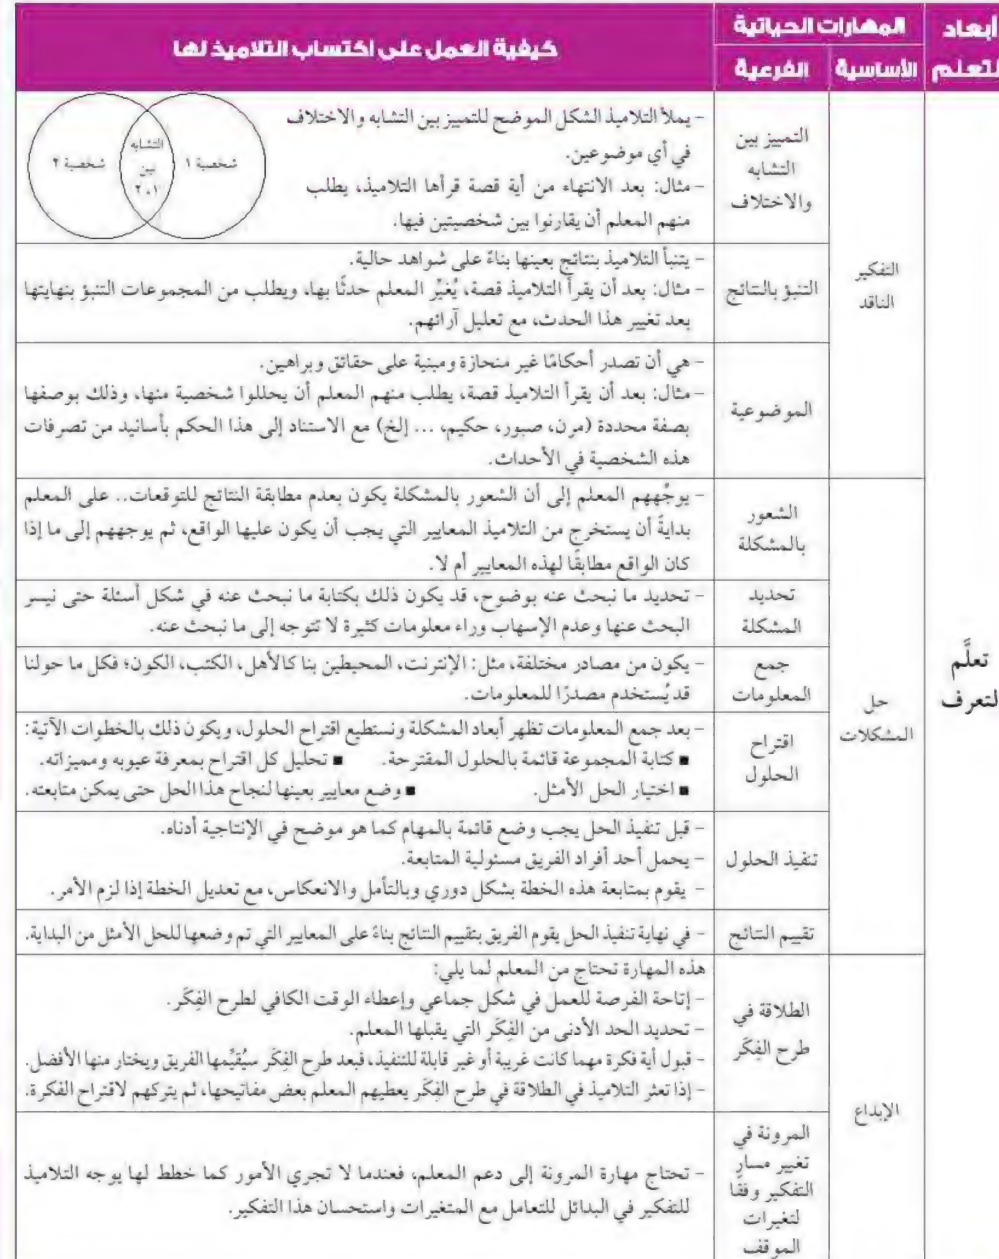 أبعاد
لتعلم
المهارات الحياتية
الأساسية
الفرعية
كيفية العمل على اكتساب التلاميذ لها
تعلَّم
لتعرف
التفكير
الناقد
التمييز بين
التشابه
والاختلاف
- يملأ التلاميذ الشكل الموضح للتمييز بين التشابه والاختلاف
في أي موضوعين.
- مثال: بعد الانتهاء من أية قصة قرأها التلاميذ، يطلب
منهم المعلم أن يقارنوا بين شخصيتين فيها.
شخصية ١
التشابه
بين
٢،١
شخصية ٢
التنبؤ بالنتائج
- يتنبأ التلاميذ بنتائج بعينها بناءً على شواهد حالية.
- مثال: بعد أن يقرأ التلاميذ قصة، يُغيِّر المعلم حدثًا بها، ويطلب من المجموعات التنبؤ بنهايتها
بعد تغيير هذا الحدث، مع تعليل آرائهم.
الموضوعية
- هي أن تصدر أحكامًا غير منحازة ومبنية على حقائق وبراهين.
- مثال: بعد أن يقرأ التلاميذ قصة، يطلب منهم المعلم أن يحللوا شخصية منها، وذلك بوصفها
بصفة محددة (مرن، صبور، حكيم، ... إلخ) مع الاستناد إلى هذا الحكم بأسانيد من تصرفات
هذه الشخصية في الأحداث.
حل
المشكلات
الشعور
بالمشكلة
- يوجُّههم المعلم إلى أن الشعور بالمشكلة يكون بعدم مطابقة النتائج للتوقعات.. على المعلم
بدايةً أن يستخرج من التلاميذ المعايير التي يجب أن يكون عليها الواقع، ثم يوجههم إلى ما إذا
كان الواقع مطابقًا لهذه المعايير أم لا.
تحديد
المشكلة
- تحديد ما نبحث عنه بوضوح، قد يكون ذلك بكتابة ما نبحث عنه في شكل أسئلة حتى نيسر
البحث عنها وعدم الإسهاب وراء معلومات كثيرة لا تتوجه إلى ما نبحث عنه.
جمع
المعلومات
- يكون من مصادر مختلفة، مثل: الإنترنت، المحيطين بنا كالأهل، الكتب، الكون؛ فكل ما حولنا
قد يُستخدم مصدرًا للمعلومات.
اقتراح
الحلول
- بعد جمع المعلومات تظهر أبعاد المشكلة ونستطيع اقتراح الحلول، ويكون ذلك بالخطوات الآتية:
■ كتابة المجموعة قائمة بالحلول المقترحة. ■ تحليل كل اقتراح بمعرفة عيوبه ومميزاته.
■ اختيار الحل الأمثل. ■ وضع معايير بعينها لنجاح هذا الحل حتى يمكن متابعته.
تنفيذ الحلول
- قبل تنفيذ الحل يجب وضع قائمة بالمهام كما هو موضح في الإنتاجية أدناه.
- يحمل أحد أفراد الفريق مسئولية المتابعة.
- يقوم بمتابعة هذه الخطة بشكل دوري وبالتأمل والانعكاس، مع تعديل الخطة إذا لزم الأمر.
تقييم النتائج
- في نهاية تنفيذ الحل يقوم الفريق بتقييم النتائج بناءً على المعايير التي تم وضعها للحل الأمثل من البداية.
الإبداع
الطلاقة في
طرح الفِكَر
هذه المهارة تحتاج من المعلم لما يلي:
- إتاحة الفرصة للعمل في شكل جماعي وإعطاء الوقت الكافي لطرح الفِكَر.
- تحديد الحد الأدنى من الفِكَر التي يقبلها المعلم.
- قبول أية فكرة مهما كانت غريبة أو غير قابلة للتنفيذ، فبعد طرح الفِكَر سيُقيِّمها الفريق ويختار منها الأفضل.
- إذا تعثر التلاميذ في الطلاقة في طرح الفِكَر يعطيهم المعلم بعض مفاتيحها، ثم يتركهم لاقتراح الفكرة.
المرونة في
تغيير مسار
التفكير وفقًا
لتغيرات
الموقف
- تحتاج مهارة المرونة إلى دعم المعلم، فعندما لا تجري الأمور كما خطط لها يوجه التلاميذ
للتفكير في البدائل للتعامل مع المتغيرات واستحسان هذا التفكير.